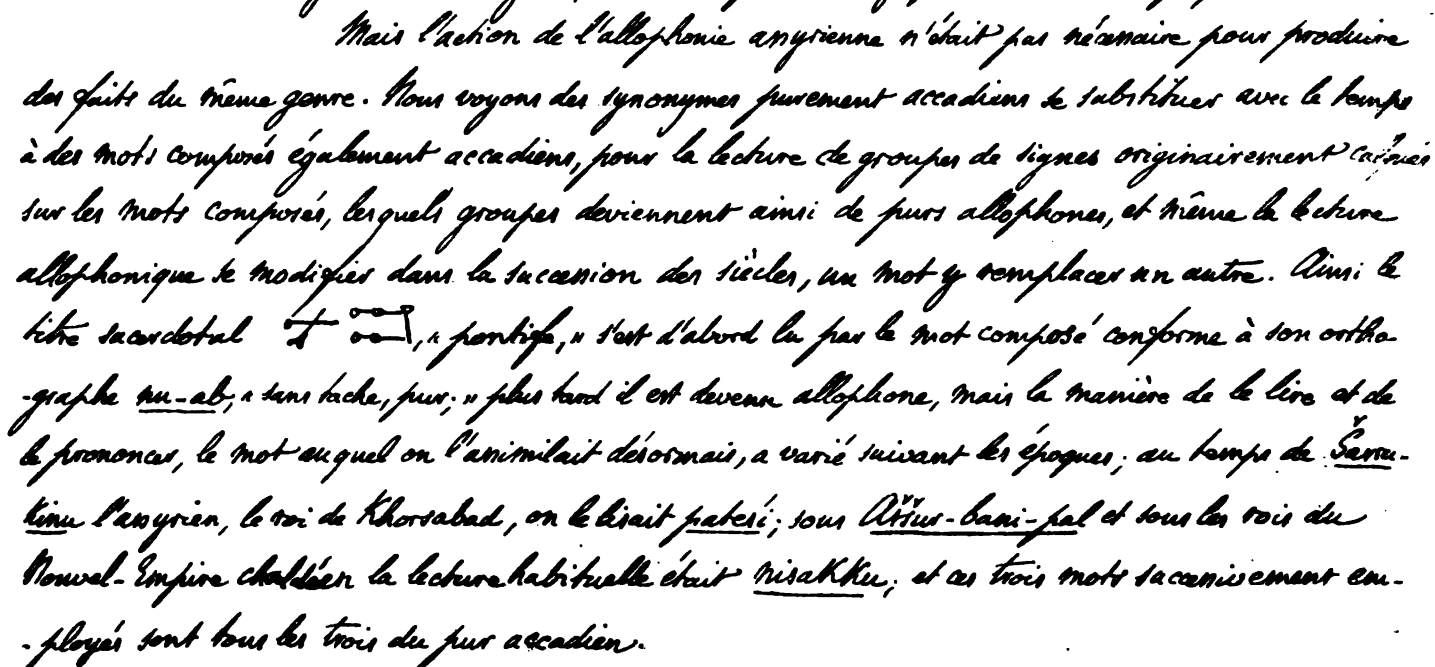 Mais l'action de l'allophonie assyrienne n'était pas nécessaire pour produire
des faits du même genre. Nous voyons des synonymes purement accadiens se substituer avec le temps
à des mots composés également accadiens, pour la lecture de groupes de signes originairement
sur les mots composés, lesquels groupes deviennent ainsi de purs allophones, et même la lecture
allophonique se modifier dans la succession des siècles, un mot y remplacer un autre. Ainsi le
titre sacerdotal , « pontife, » s'est d'abord lu par le mot composé conforme à son ortho-
-graphe nu-ab, « sans tache, pur; » plus tard il est devenu allophone, mais la manière de le lire et de
le prononcer, le mot auquel on l'assimilait désormais, a varié suivant les époques; au temps de Šarru-
kinu l'assyrien, le roi de Khorsabad, on le lisait patesi; sous Aššur-bani-pal et sous les rois du
Nouvel-Empire chaldéen la lecture habituelle était nisakku; et ces trois mots successivement em-
-ployés sont tous les trois du pur accadien.